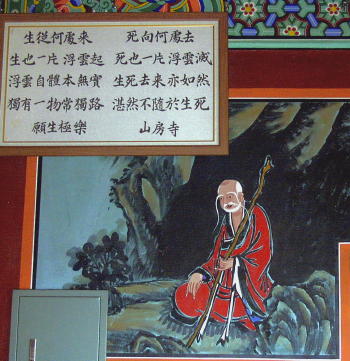 生從何處來 死向何處去
生也一片 浮雲起 死也一片 浮雲滅
浮雲自體本無實 生死去來亦如然
獨有一物常獨路 湛然不隨於生死
願生極樂 山房寺